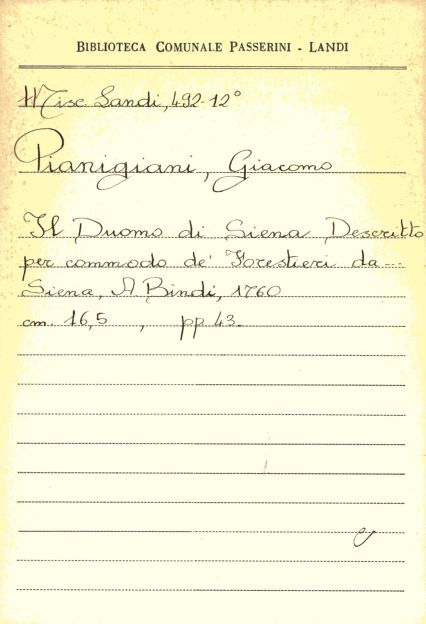 BIBLIOTECA COMUNALE PASSERINI - LANDI
Misc. Landi, 492-12°
Pianigiani, Giacomo
Il Duomo di Siena Descritto
per commodo de' Forestieri da...
Siena, A. Bindi, 1760
cm. 16,5 , pp 43.